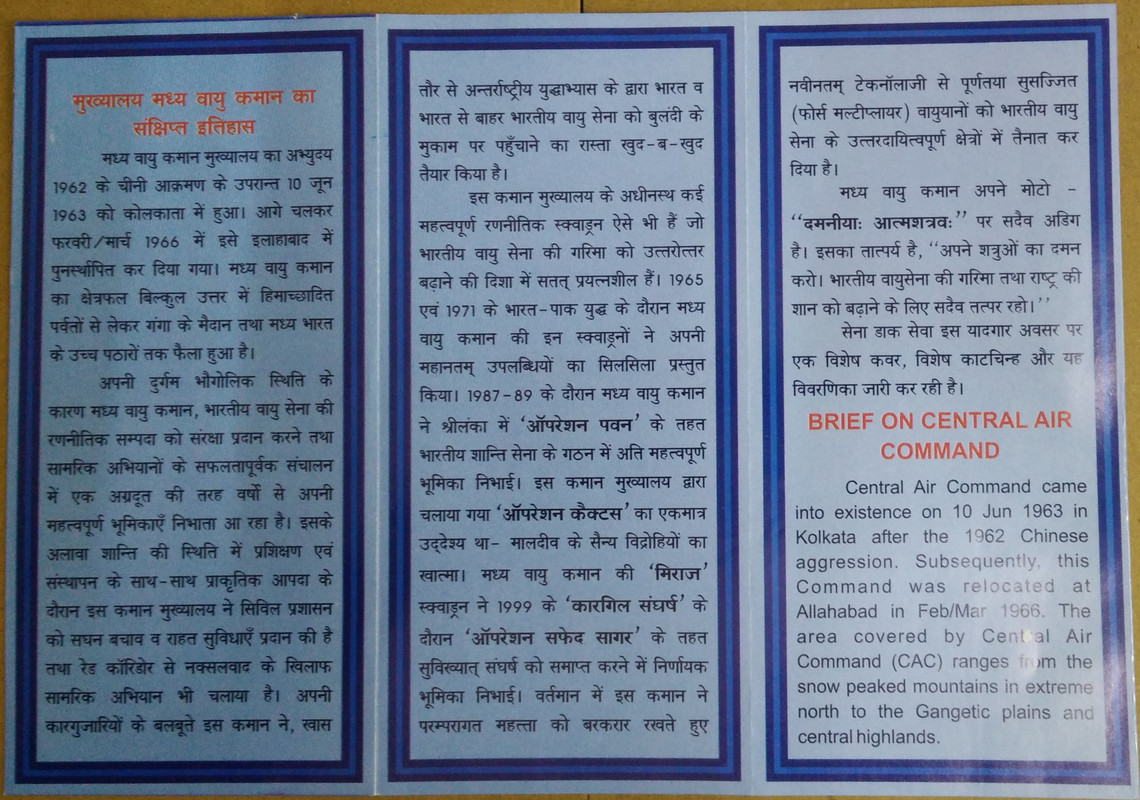 मुख्यालय मध्य वायु कमान का
संक्षिप्त इतिहास
मध्य वायु कमान मुख्यालय का अभ्युदय
1962 के चीनी आक्रमण के उपरान्त 10 जून
1963 को कोलकाता में हुआ। आगे चलकर
फरवरी/मार्च 1966 में इसे इलाहाबाद में
पुनर्स्थापित कर दिया गया। मध्य वायु कमान
का क्षेत्रफल बिल्कुल उत्तर में हिमाच्छादित
पर्वतों से लेकर गंगा के मैदान तथा मध्य भारत
के उच्च पठारों तक फैला हुआ है।
अपनी दुर्गम भौगोलिक स्थिति के
कारण मध्य वायु कमान, भारतीय वायु सेना की
रणनीतिक सम्पदा को संरक्षा प्रदान करने तथा
सामरिक अभियानों के सफलतापूर्वक संचालन
में एक अग्रदूत की तरह वर्षों से अपनी
महत्वपूर्ण भूमिकाएँ निभाता आ रहा है। इसके
अलावा शान्ति की स्थिति में प्रशिक्षण एवं
संस्थापन के साथ-साथ प्राकृतिक आपदा के
दौरान इस कमान मुख्यालय ने सिविल प्रशासन
को सघन बचाव व राहत सुविधाएँ प्रदान की है
तथा रेड कॉरिडोर से नक्सलवाद के खिलाफ
सामरिक अभियान भी चलाया है। अपनी
कारगुजारियों के बलबूते इस कमान ने, खास
तौर से अन्तर्राष्ट्रीय युद्धाभ्यास के द्वारा भारत व
भारत से बाहर भारतीय वायु सेना को बुलंदी के
मुकाम पर पहुँचाने का रास्ता खुद-ब-खुद
तैयार किया है।
इस कमान मुख्यालय के अधीनस्थ कई
महत्वपूर्ण रणनीतिक स्क्वाड्रन ऐसे भी हैं जो
भारतीय वायु सेना की गरिमा को उत्तरोत्तर
बढ़ाने की दिशा में सतत् प्रयत्नशील हैं। 1965
एवं 1971 के भारत-पाक युद्ध के दौरान मध्य
वायु कमान की इन स्क्वाड्रनों ने अपनी
महानतम् उपलब्धियों का सिलसिला प्रस्तुत
किया। 1987-89 के दौरान मध्य वायु कमान
ने श्रीलंका में 'ऑपरेशन पवन' के तहत
भारतीय शान्ति सेना के गठन में अति महत्वपूर्ण
भूमिका निभाई। इस कमान मुख्यालय द्वारा
चलाया गया 'ऑपरेशन कैक्टस' का एकमात्र
उद्देश्य था- मालदीव के सैन्य विद्रोहियों का
खात्मा। मध्य वायु कमान की 'मिराज'
स्क्वाड्रन ने 1999 के 'कारगिल संघर्ष' के
दौरान 'ऑपरेशन सफेद सागर' के तहत
सुविख्यात् संघर्ष को समाप्त करने में निर्णायक
भूमिका निभाई। वर्तमान में इस कमान ने
परम्परागत महत्ता को बरकरार रखते हुए
नवीनतम् टेकनॉलाजी से पूर्णतया सुसज्जित
(फोर्स मल्टीप्लायर) वायुयानों को भारतीय वायु
सेना के उत्तरदायित्वपूर्ण क्षेत्रों में तैनात कर
दिया है।
मध्य वायु कमान अपने मोटो -
"दमनीयाः आत्मशत्रवः" पर सदैव अडिग
है। इसका तात्पर्य है, "अपने शत्रुओं का दमन
करो। भारतीय वायुसेना की गरिमा तथा राष्ट्र की
शान को बढ़ाने के लिए सदैव तत्पर रहो।"
सेना डाक सेवा इस यादगार अवसर पर
एक विशेष कवर, विशेष काटचिन्ह और यह
विवरणिका जारी कर रही है।
BRIEF ON CENTRAL AIR
COMMAND
Central Air Command came
into existence on 10 Jun 1963 in
Kolkata after the 1962 Chinese
aggression. Subsequently, this
Command was relocated at
Allahabad in Feb/Mar 1966. The
area covered by Central Air
Command (CAC) ranges from the
snow peaked mountains in extreme
north to the Gangetic plains and
central highlands.